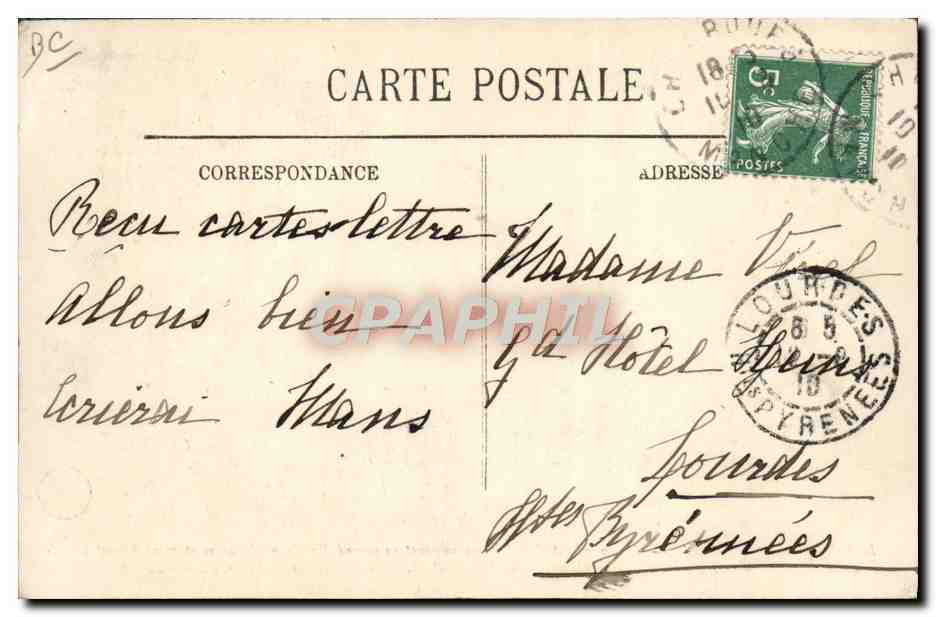 BC
CARTE POSTALE
CORRESPONDANCE
ADRESSE
5c
REPUBLIQUE FRANCAISE
POSTES
Recu cartes lettre
Allons bien
Ecrierai Mans
Madame
Gd Hôtel Heins
Lourdes
Htes Pyrénnées
LOURDES
8 5
10
Htes PYRENEES
CPAPHIL